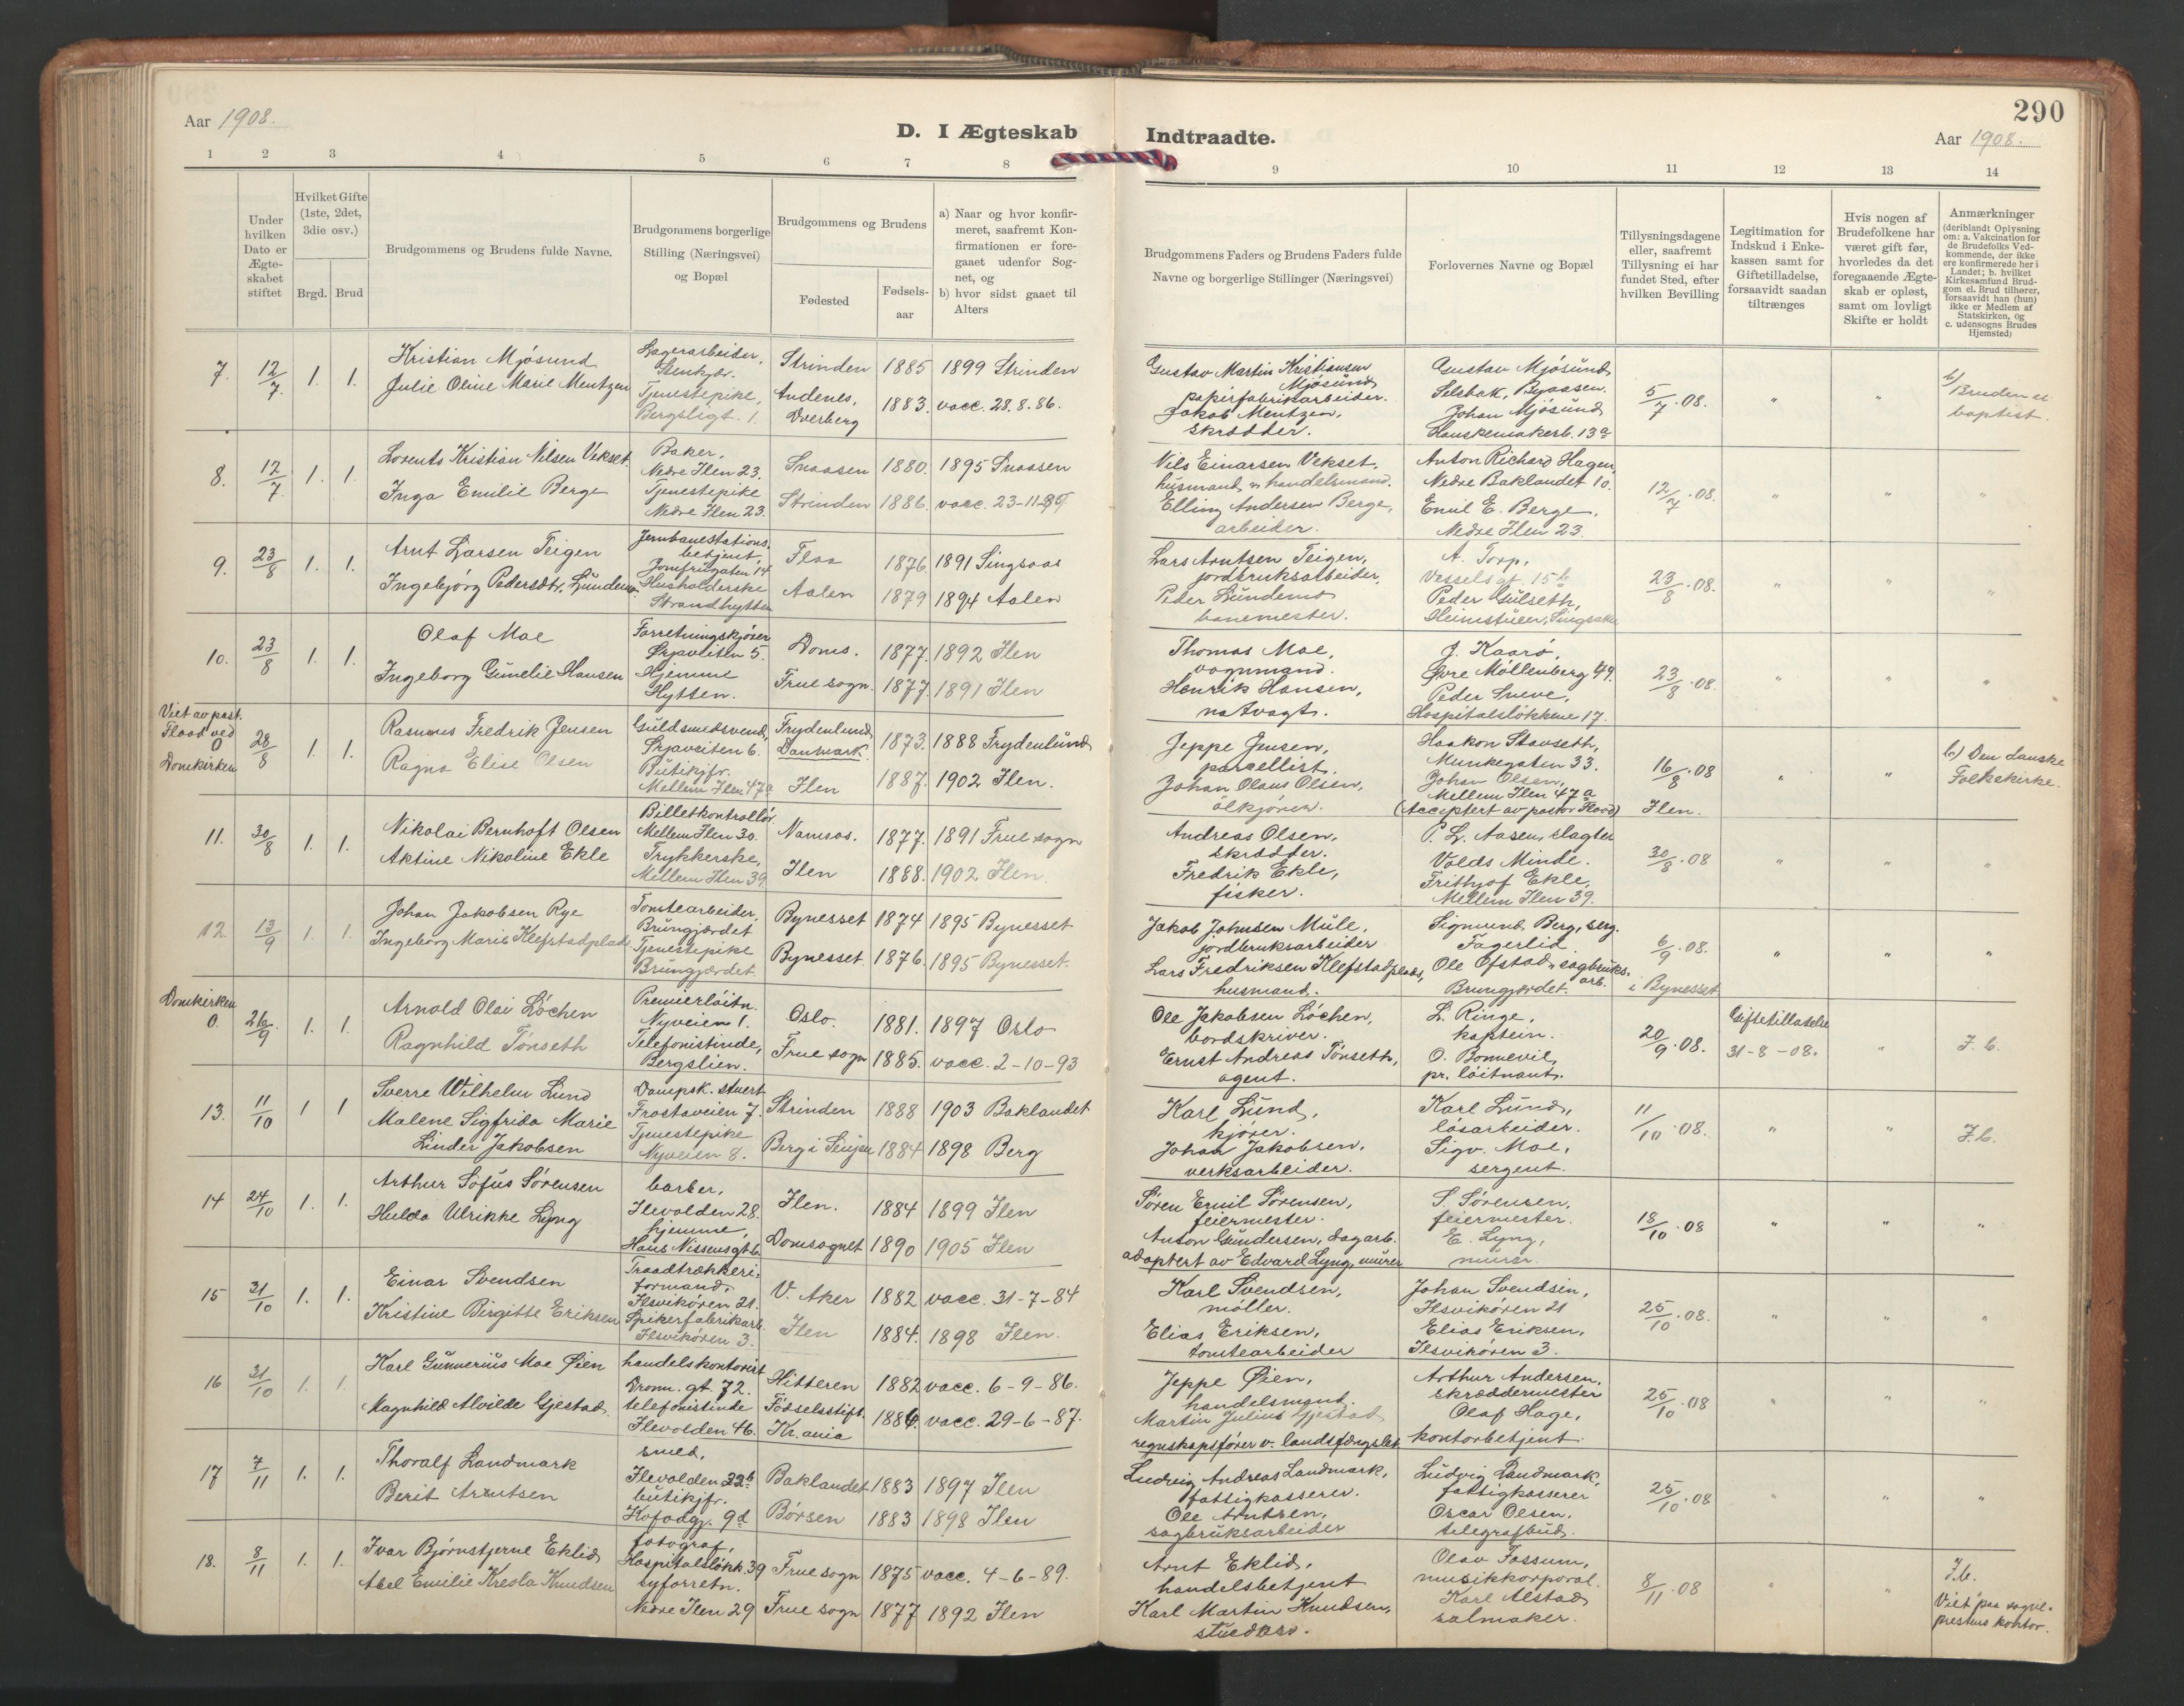 290
Aar 1908.
D. I Ægteskab
Indtraadte.
Aar 1908.
1 2 3 4 5 6 7 8
9 10 11 12 13 14
Under hvilken Dato er Ægteskabet stiftet
Hvilket Gifte (1ste, 2det, 3die osv.)
Brgd. Brud
Brudgommens og Brudens fulde Navne.
Brudgommens borgerlige Stilling (Næringsvei) og Bopæl
Brudgommens og Brudens
Fødested
Fødselsaar
a) Naar og hvor konfirmeret, saafremt Konfirmationen er foregaaet udenfor Sognet, og
b) hvor sidst gaaet til Alters
Brudgommens Faders og Brudens Faders fulde Navne og borgerlige Stillinger (Næringsvei)
Forlovernes Navne og Bopæl
Tillysningsdagene eller, saafremt Tillysning ei har fundet Sted, efter hvilken Bevilling
Legitimation for Indskud i Enkekassen samt for Giftetilladelse, forsaavidt saadan tiltrænges
Hvis nogen af Brudefolkene har været gift før, hvorledes da det foregaaende Ægteskab er opløst, samt om lovligt Skifte er holdt
Anmærkninger
(deriblandt Oplysning om: a. Vakcination for de Brudefolks Vedkommende, der ikke ere konfirmerede her i Landet; b. hvilket Kirkesamfund Brudgom el. Brud tilhører, forsaavidt han (hun) ikke er Medlem af Statskirken, og c. udensogns Brudes Hjemsted)
7. 12/7. 1. 1.
Kristian Mjösund
Julie Oline Marie Mentzen
Lagerarbeider,
Stenkjær.
Tjenestepike,
Bergsligt. 1.
Strinden 1885 1899 Strinden
Andenes, Dverberg 1883. vacc. 28.8.86.
Gustav Martin Kristiansen Mjösund
papirfabrikarbeider.
Jakob Mentzen,
skrædder.
Gustav Mjösund
Selsbak, Byaasen.
Johan Mjösund
Hanskemakerb. 13a
5/7.08. " "
b/ Bruden er baptist.
8. 12/7. 1. 1.
Lorents Kristian Nilsen Vekset.
Inga Emilie Berge
Baker,
Nedre Ilen 23.
Tjenestepike
Nedre Ilen 23.
Snaasen 1880. 1895 Snaasen
Strinden 1886. vacc. 23-11-89.
Nils Einarsen Vekset,
husmand og handelsmand.
Elling Andersen Berge,
arbeider.
Anton Richard Hagen,
Nedre Baklandet 10.
Emil E. Berge,
Nedre Ilen 23.
12/7.08. " " "
9. 23/8 1. 1.
Arnt Larsen Teigen
Ingebjörg Pedersdtr. Lundemo.
Jernbanestations
betjent
Jomfrugaten 14
Husholderske
Strandhytten
Flaa 1876. 1891 Singsaas
Aalen 1879 1894 Aalen
Lars Arntsen Teigen,
jordbruksarbeider,
Peder Lundemo
banemester.
A. Torp,
Vessels gt. 15b
Peder Gulseth,
Heimstuen, Singsaker
23/8.08. " " "
10. 23/8 1. 1.
Olaf Moe
Ingeborg Gunelie Hansen
Forretningskjörer
Erjaveiten 5.
Hjemme
Hytten.
Doms. 1877. 1892 Ilen
Frue sogn. 1877. 1891 Ilen
Thomas Moe,
vognmand.
Henrik Hansen,
natvagt.
J. Kaarö,
Øvre Möllenberg 49.
Peder Sneve,
Hospitalslökkene 17.
23/8.08. " " "
Viet av past. Flood ved Domkirken
0 28/8 1. 1.
Rasmus Fredrik Jensen
Ragna Elise Olsen
Guldsmedsvend,
Erjaveiten 6.
Butikjfr.
Mellem Ilen 47a
Frydenlund Danmark. 1873. 1888 Frydenlund
Ilen 1887. 1902 Ilen.
Jeppe Jensen,
parcellist.
Johan Olaus Olsen,
ölkjörer.
Haakon Stavseth,
Munkegaten 33.
Johan Olsen,
Mellem Ilen 47a
(Acceptert av pastor Flood)
16/8.08 Ilen. " "
b) Den danske Folkekirke.
11. 30/8 1. 1.
Nikolai Bernhoft Olsen
Aktine Nikoline Ekle
Billetkontrollör
Mellem Ilen 30.
Trykkerske,
Mellem Ilen 39.
Namsos. 1877. 1891 Frue sogn
Ilen 1888. 1902 Ilen.
Andreas Olsen,
skrædder.
Fredrik Ekle,
fisker.
P. L. Aasen, slagter
Volds Minde.
Frithjof Ekle,
Mellem Ilen 39.
30/8.08 " " "
12. 13/9 1. 1.
Johan Jakobsen Rye
Ingeborg Marie Klefstadplads
Tomtearbeider,
Brungjærdet
Tjenestepike
Brungjærdet.
Bynesset 1874 1895 Bynesset
Bynesset. 1876. 1895 Bynesset.
Jakob Johnsen Mule,
jordbruksarbeider
Lars Fredriksen Klefstadplads,
husmand.
Sigmund Berg, serg.
Fagerlid
Ole Ofstad, sagbruks-
arb.
Brungjærdet.
6/9.08. i Bynesset " " "
Domkirken
0. 26/9. 1. 1.
Arnold Olai Löchen
Ragnhild Tönseth
Premierlöitn.
Nyveien 1.
Telefonistinde,
Bergslien.
Oslo. 1881. 1897 Oslo
Frue sogn 1885. vacc. 2-10-93
Ole Jakobsen Löchen,
bordskriver.
Ernst Andreas Tönseth,
agent.
L. Ringe,
kaptein.
O. Bonnevie,
pr. löitnant.
20/9.08.
Giftetilladelse
31-8-08. " F.b.
13. 11/10 1 1
Sverre Wilhelm Lund
Malene Sigfrida Marie
Linder Jakobsen
Dampsk. stuert
Frostaveien 7.
Tjenestepike
Nyveien 8.
Strinden 1888 1903 Baklandet
Berg i Senjen 1884 1898 Berg
Karl Lund,
kjörer.
Johan Jakobsen,
verksarbeider.
Karl Lund,
lösarbeider.
Sigv. Moe,
sergent.
11/10.08. " " F.b.
14 24/10 1. 1.
Arthur Sofus Sörensen
Hulda Ulrikke Lyng
barber,
Ilevolden 28.
hjemme,
Hans Nissens gt 6
Ilen. 1884 1899 Ilen
Domsognet 1890 1905 Ilen
Søren Emil Sørensen,
feiermester.
Anton Gundersen, dagarb.
adoptert av Edvard Lyng, murer
S. Sörensen,
feiermester.
E. Lyng,
murer.
18/10.08 " " "
15 31/10 1. 1.
Einar Svendsen
Kristine Birgitte Eriksen
Traadtrækkeri-
formand,
Ilsvikören 21.
Spikerfabrikarb.
Ilsvikören 3.
V. Aker 1882 vacc. 31-7-84
Ilen 1884. 1898 Ilen.
Karl Svendsen,
möller.
Elias Eriksen,
tomtearbeider
Johan Svendsen,
Ilsvikören 21
Elias Eriksen,
Ilsvikören 3.
25/10.08. " " "
16 31/10 1. 1.
Karl Gunnerius Moe Øien
Magnhild Alvilde Gjestad.
handelskontorist
Dronn. gt. 72.
telefonistinde
Ilevolden 46.
Hitteren 1882 vacc. 6-9-86.
Födselsstift. Kr.ania 1884. vacc. 29-6-87.
Jeppe Øien,
handelsmand.
Martin Julius Gjestad
regnskapsförer v. landsfængslet
Arthur Andersen,
skræddermester
Olaf Hage,
kontorbetjent.
25/10.08 " " "
17 7/11 1. 1.
Thoralf Landmark
Berit Arntsen
smed,
Ilevolden 32b
butikjfr.
Kofodgj. 9d
Baklandet 1883 1897 Ilen
Börsen 1883 1898 Ilen
Ludvig Andreas Landmark,
fattigkasserer.
Ole Arntsen,
sagbruksarbeider
Ludvig Landmark,
fattigkasserer
Oscar Olsen,
telegrafbud.
25/10.08 " " "
18. 8/11 1. 1.
Ivar Bjørnstjerne Eklid
Abel Emilie Kreola Knudsen
fotograf,
Hospitalslökk. 39
syforretn.
Nedre Ilen 29
Frue sogn 1875 vacc. 4-6-89.
Frue sogn 1877 1892 Ilen
Arnt Eklid,
handelsbetjent
Karl Martin Knudsen,
stuedrv.
Olav Fossum,
musikkorporal.
Karl Alstad
salmaker.
8/11.08 " "
F.b.
Viet paa sogne-
prestens kontor.